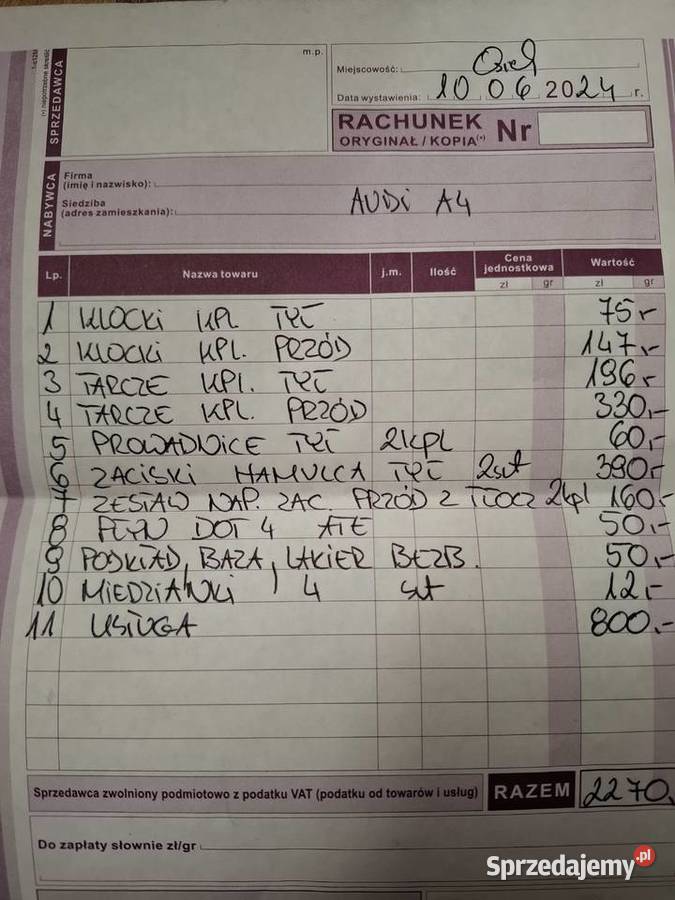 m.p.
1-c12M
(*) niepotrzebne skreślić
SPRZEDAWCA
Miejscowość: Osiek
Data wystawienia: 10 06 2024 r.
RACHUNEK Nr
ORYGINAŁ / KOPIA(*)
NABYWCA
Firma
(imię i nazwisko):
Siedziba
(adres zamieszkania): AUDI A4
Lp. Nazwa towaru j.m. Ilość Cena jednostkowa Wartość
zł gr zł gr
1 KLOCKI KPL TYŁ 75,-
2 KLOCKI KPL. PRZÓD 147,-
3 TARCZE KPL. TYŁ 196,-
4 TARCZE KPL. PRZÓD 330,-
5 PROWADNICE TYŁ 2kpl 60,-
6 ZACISKI HAMULCA TYŁ 2szt 390,-
7 ZESTAW NAP. ZAC. PRZÓD Z TŁOCZ 2kpl 160,-
8 PŁYN DOT 4 ATE 50,-
9 PODKŁAD, BAZA, LAKIER BEZB. 50,-
10 MIEDZIANKI 4 szt 12,-
11 USŁUGA 800,-
Sprzedawca zwolniony podmiotowo z podatku VAT (podatku od towarów i usług) RAZEM 2270,
Do zapłaty słownie zł/gr
Sprzedajemy.pl